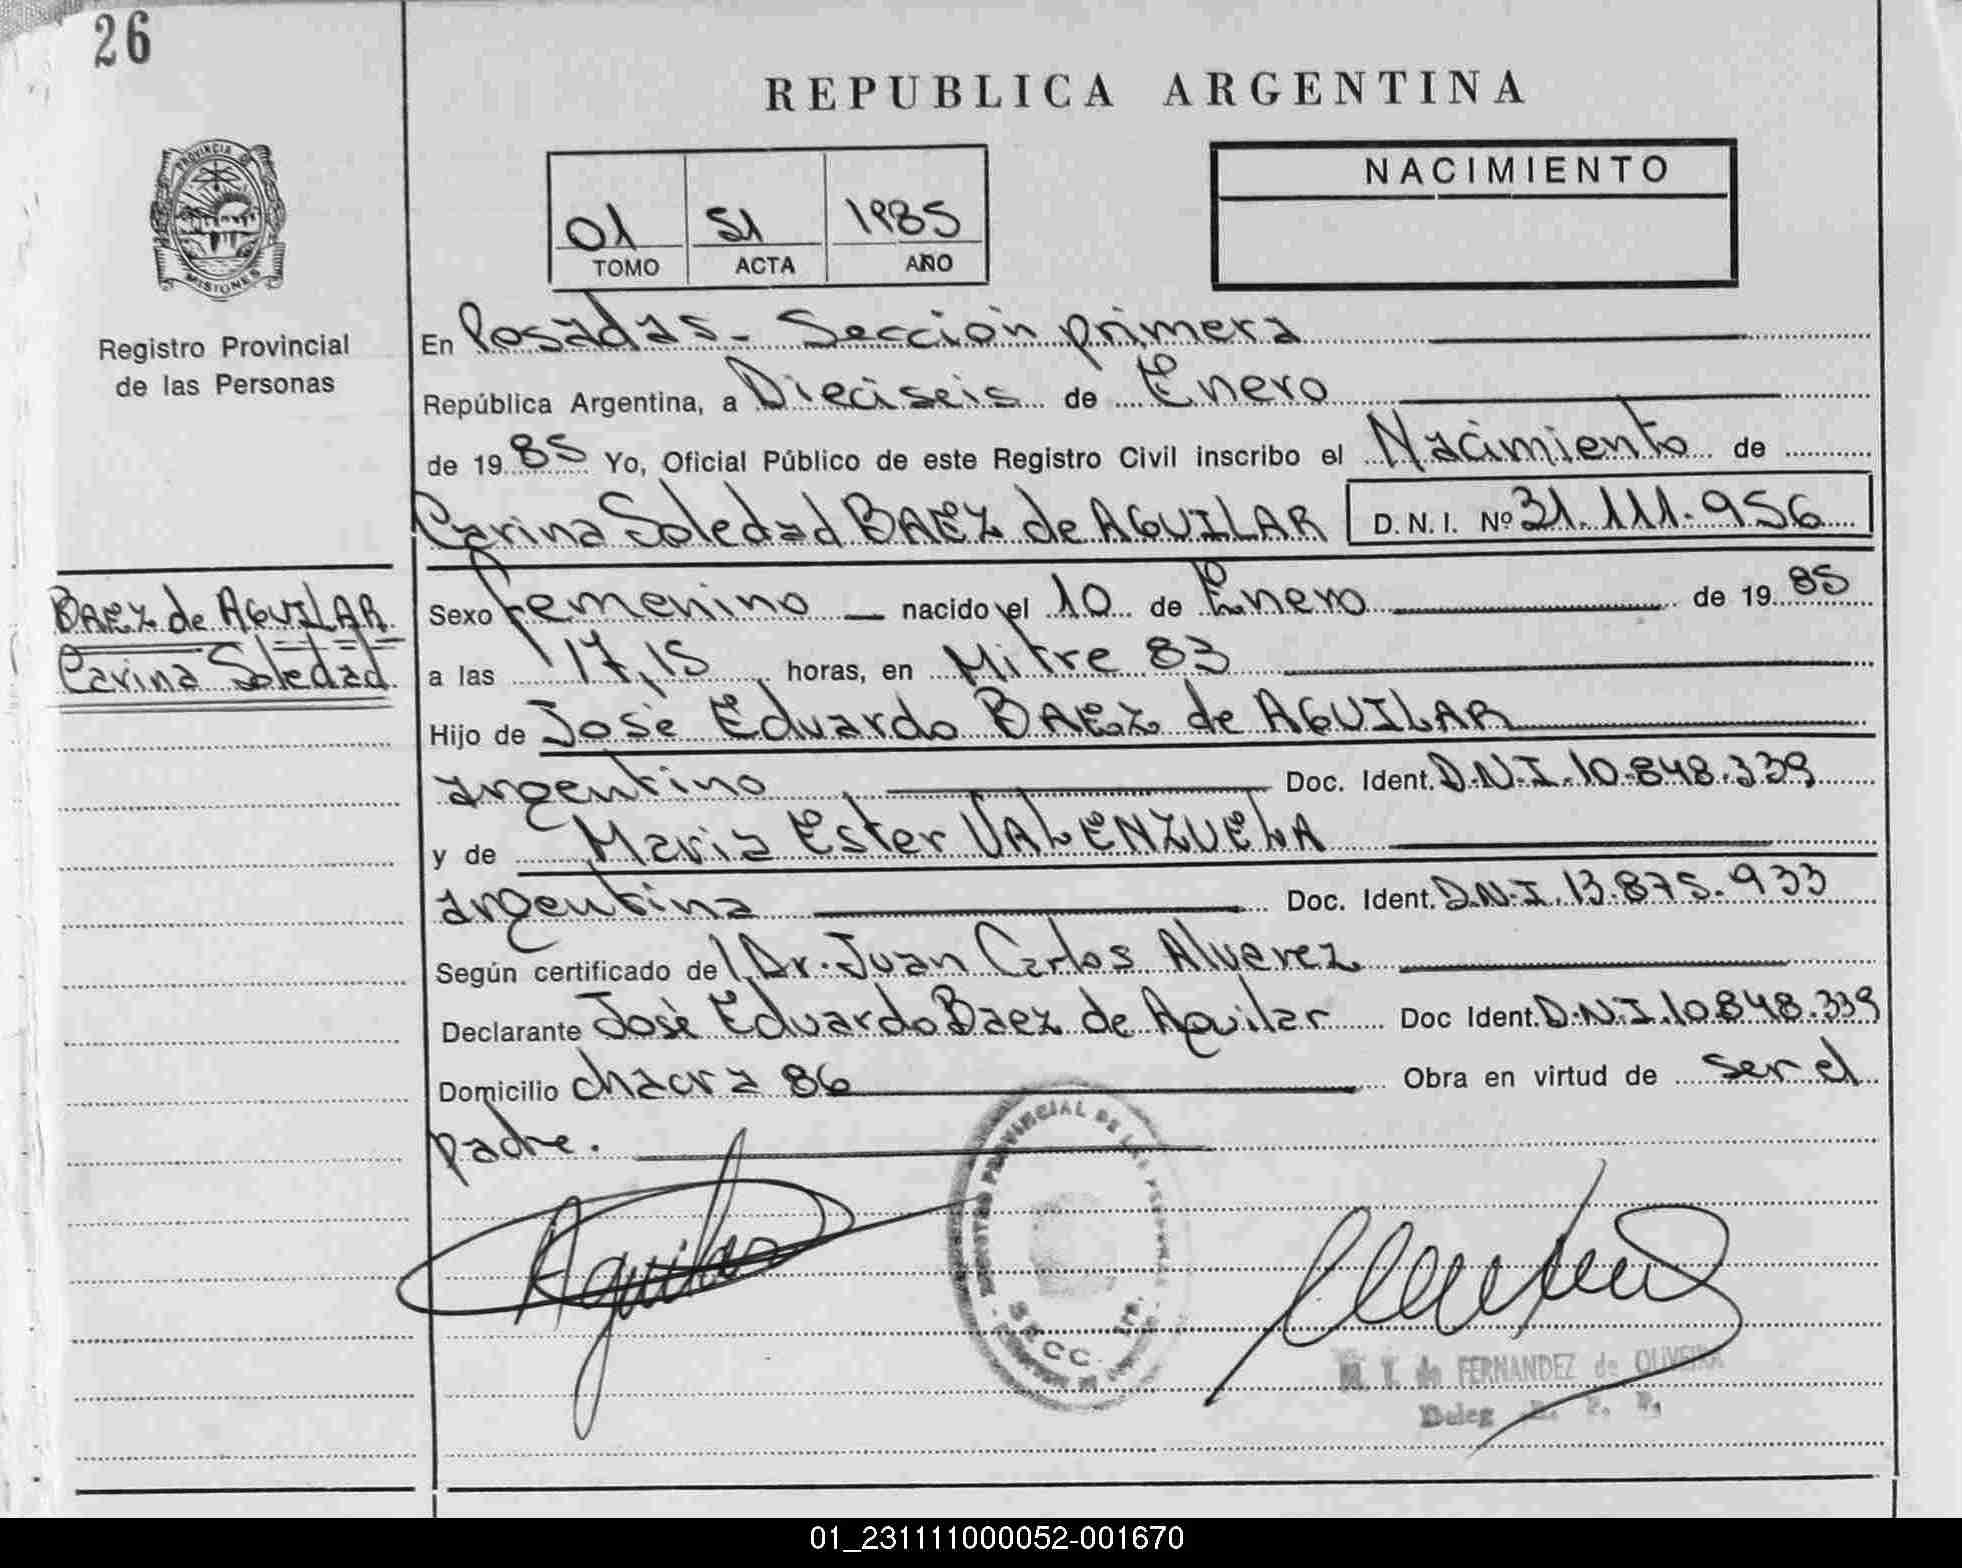 26
REPUBLICA ARGENTINA
PROVINCIA DE
MISIONES
Registro Provincial
de las Personas
01 51 1985
TOMO ACTA AÑO
NACIMIENTO
En Posadas - Sección primera
República Argentina, a Dieciseis de Enero
de 1985 Yo, Oficial Público de este Registro Civil inscribo el Nacimiento de
Carina Soledad BAEZ de AGUILAR D.N.I. Nº 31.111.956
BAEZ de AGUILAR
Carina Soledad
Sexo femenino nacido el 10 de Enero de 1985
a las 17,15 horas, en Mitre 83
Hijo de José Eduardo BAEZ de AGUILAR
argentino Doc. Ident. D.N.I. 10.848.339
y de Maria Ester VALENZUELA
argentina Doc. Ident. D.N.I. 13.875.933
Según certificado del Dr. Juan Carlos Alverez
Declarante José Eduardo Baez de Aguilar Doc Ident. D.N.I. 10.848.339
Domicilio chacra 86 Obra en virtud de ser el
padre.
REGISTRO PROVINCIAL DE LAS PERSONAS
SECC. 1ra.
Aguilar
de FERNANDEZ de OLIVEIRA
Deleg
01_231111000052-001670